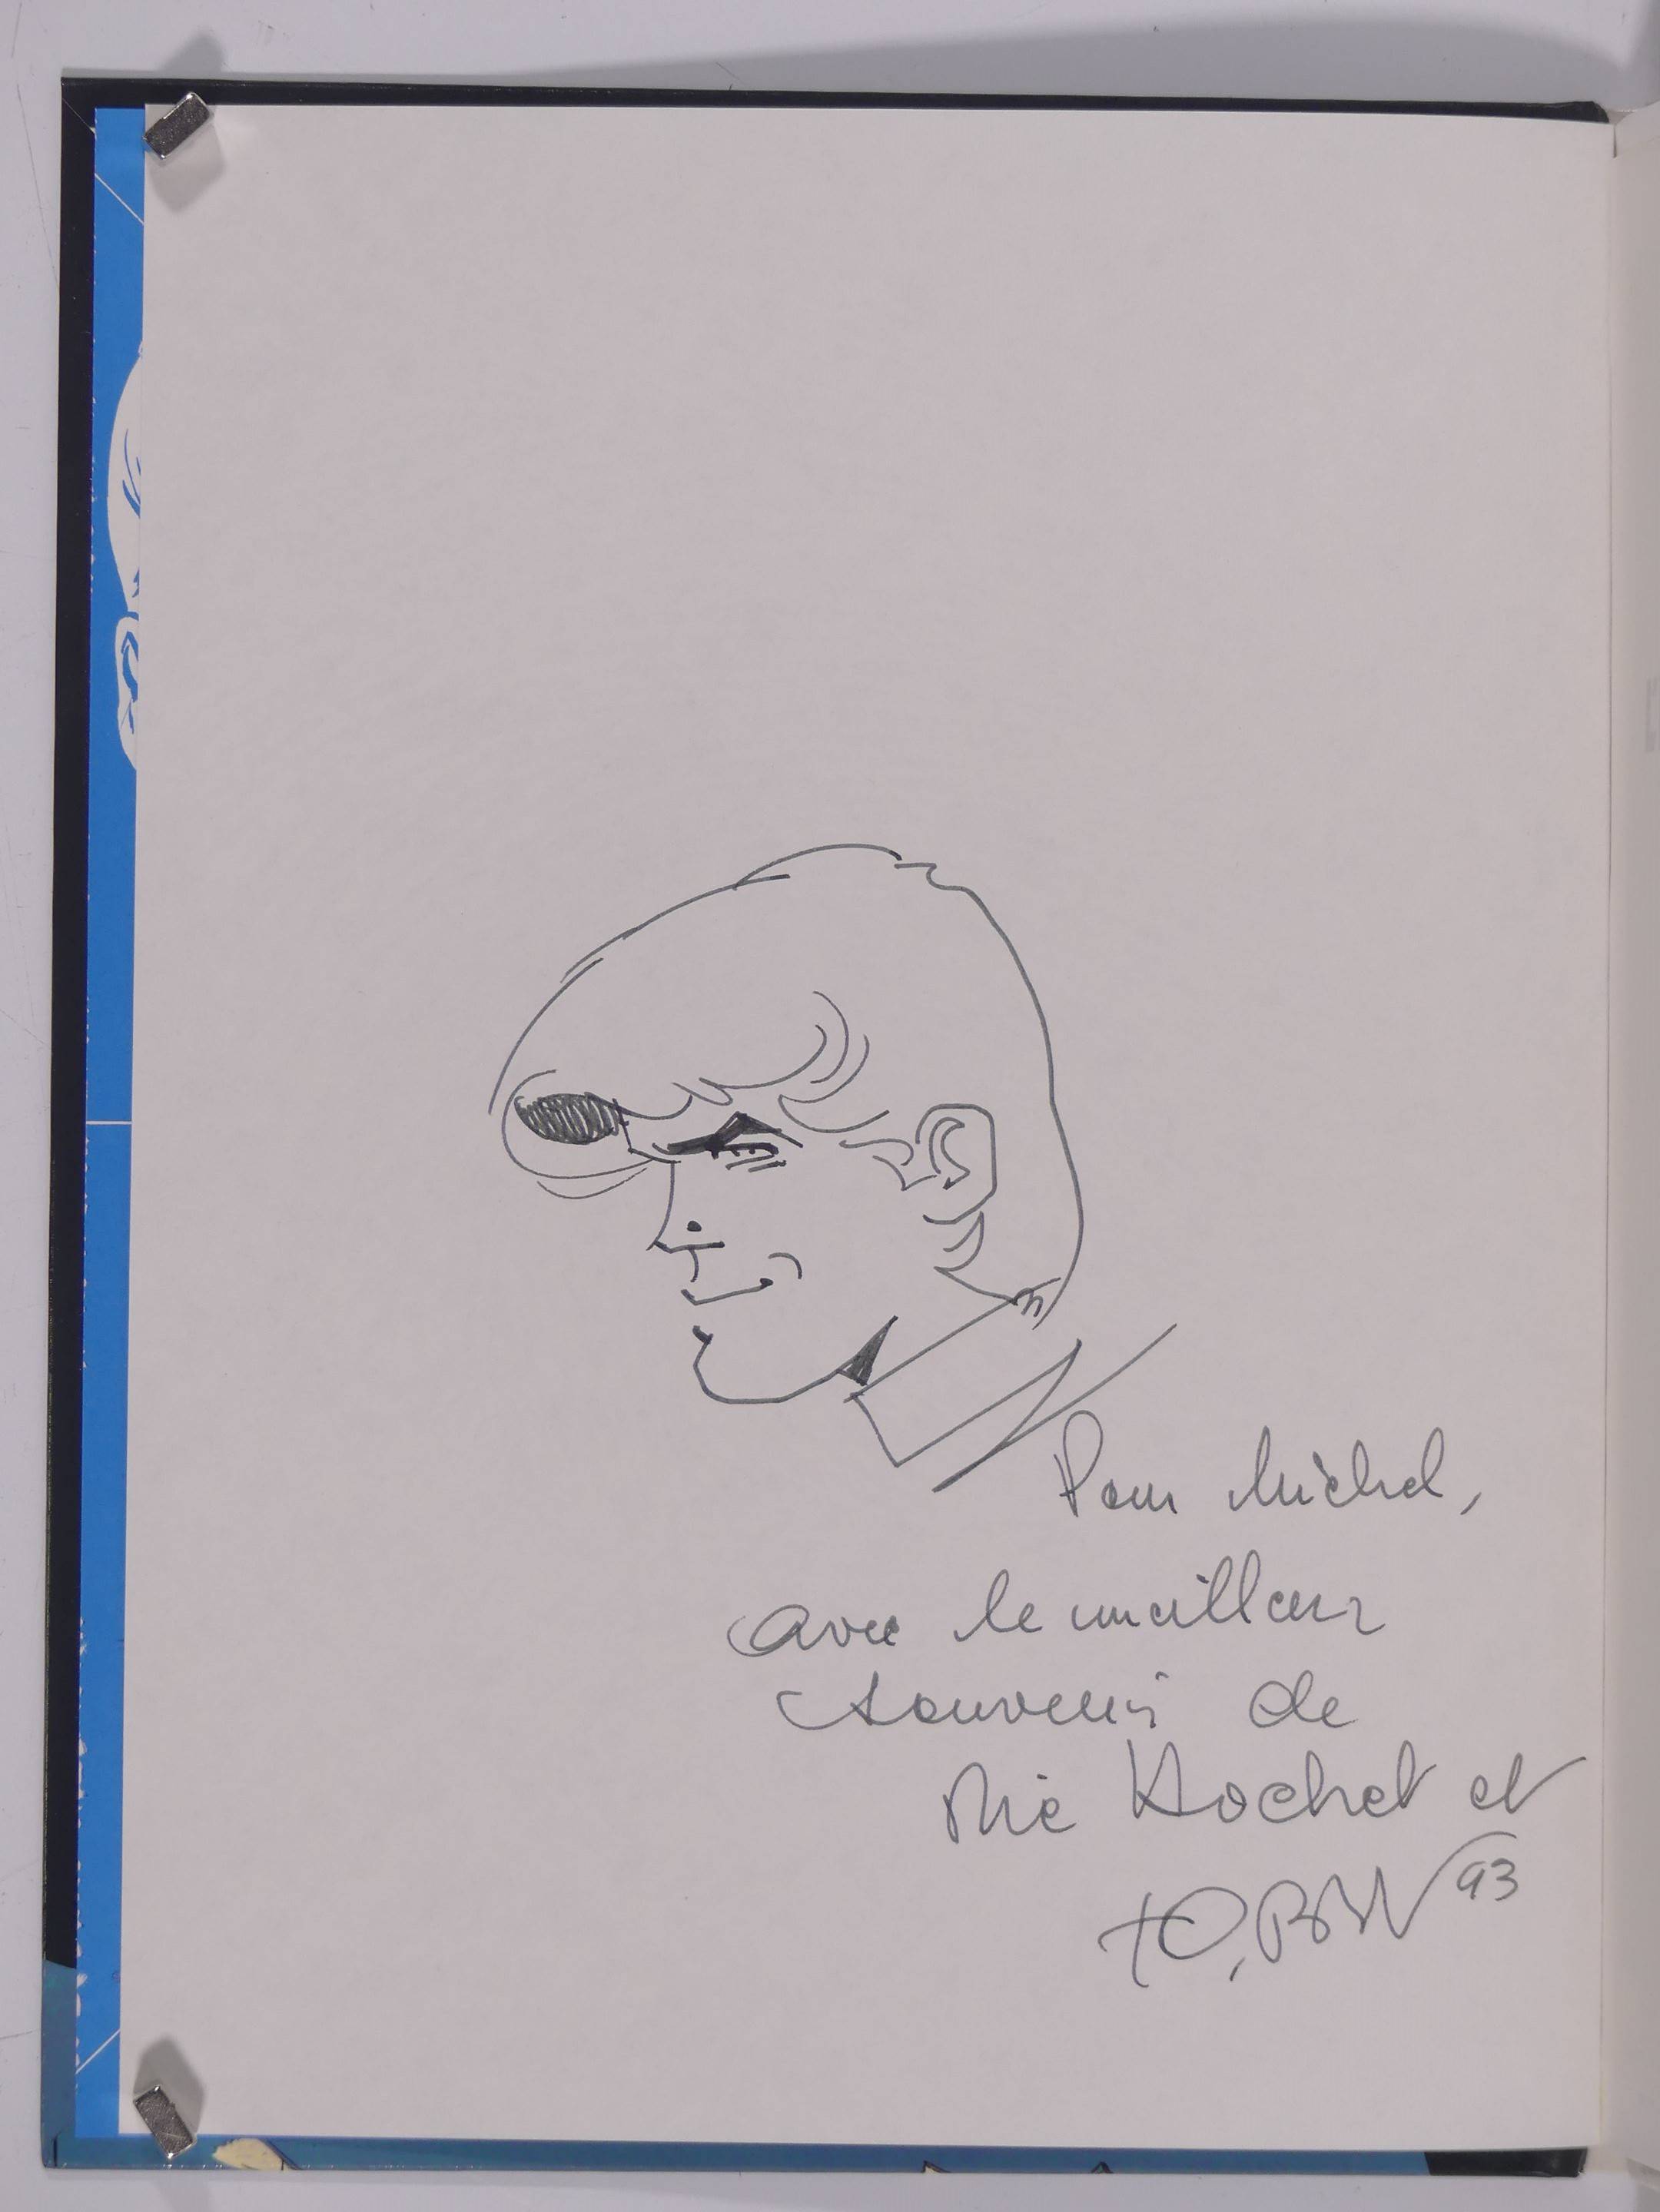 Pour Michel,
avec le meilleur
souvenir de
Ric Hochet et
TIBET 93